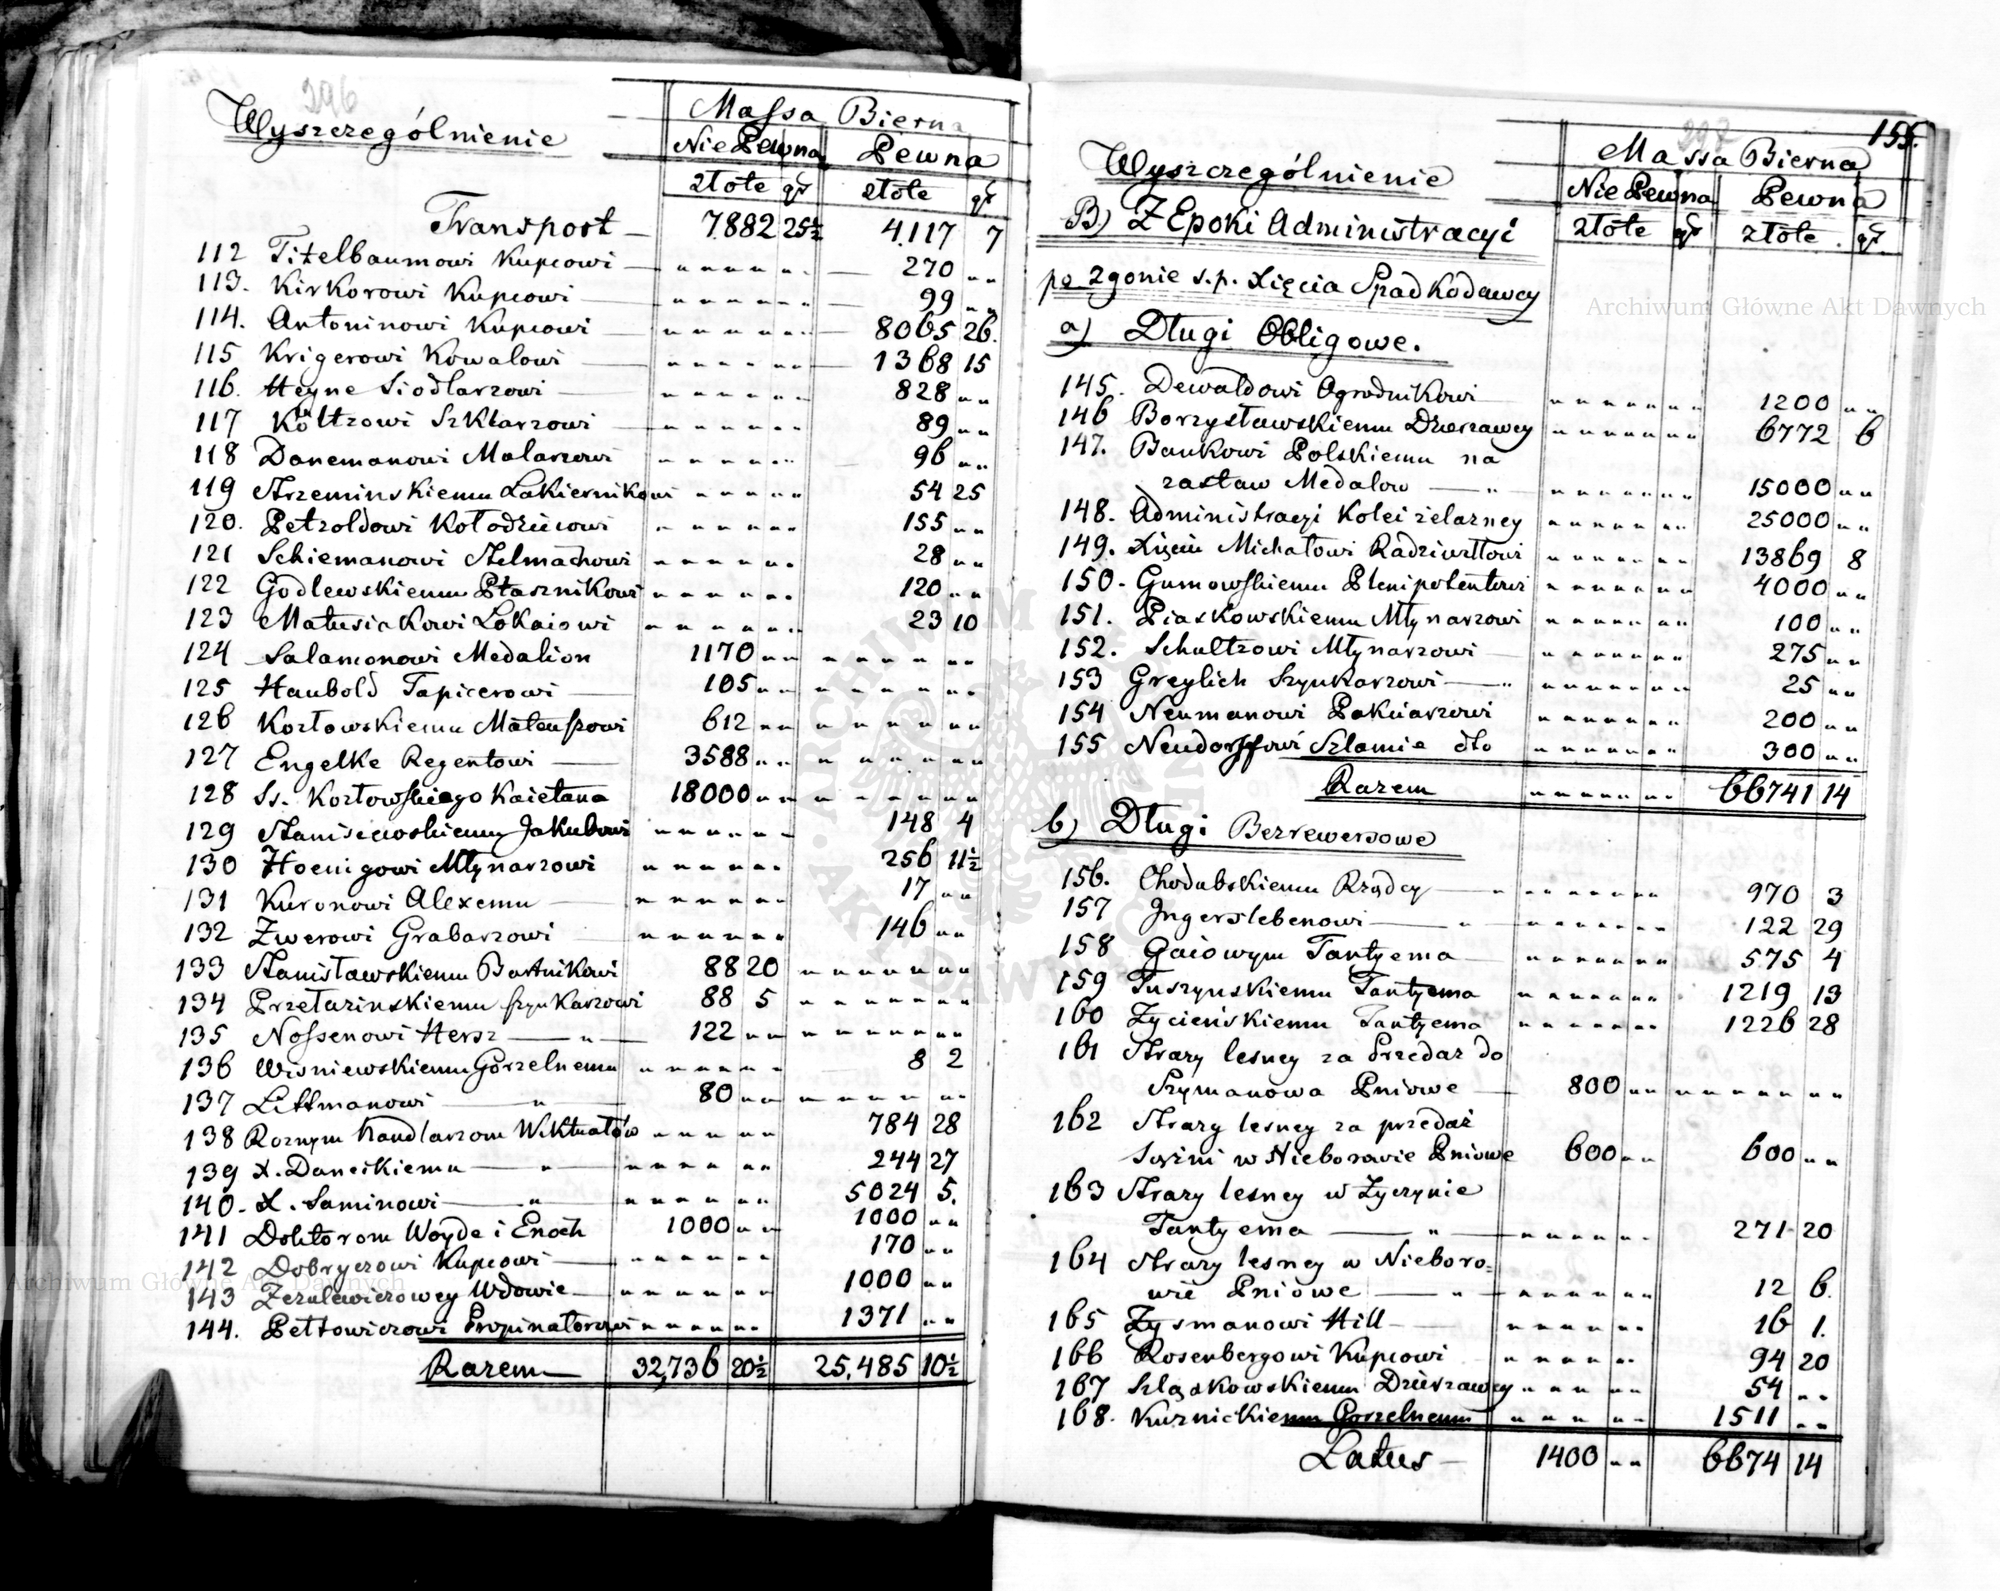 296
Wyszczególnienie
Massa Bierna
Nie Pewna Pewna
złote gr złote gr
Transport 7882 25½ 4117 7
112 Titelbaumowi Kupcowi 270 „ „
113. Kirkorowi Kupcowi 99 „ „
114. Antoninowi Kupcowi 8065 26.
115 Krigerowi Kowalowi 1368 15
116. Heyne Siodlarzowi 828 „ „
117 Költzowi Szklarzowi 89 „ „
118 Danemanowi Malarzowi 96 „ „
119 Strzeminskiemu Lakiernikowi 54 25
120. Petzoldowi Kołodziejowi 155 „ „
121 Schiemanowi Stelmachowi 28 „ „
122 Godlewskiemu Ptasznikowi 120 „ „
123 Matusiakowi Lokaiowi 23 10
124 Salamonowi Medalion 1170 „ „
125 Haubold Tapicerowi 105 „ „
126 Kozłowskiemu Mateuszowi 612 „ „
127 Engelke Regentowi 3588 „ „
128 Ss. Kozłowskiego Kaietana 18000 „ „
129 Staniszewskiemu Jakubowi 148 4
130 Hoenigowi Młynarzowi 256 11½
131 Kuronowi Alexemu 17 „ „
132 Zwerowi Grabarzowi 146 „ „
133 Stanisławskiemu Bartnikowi 88 20
134 Przetazinskiemu szynkarzowi 88 5
135 Nossenowi Hersz 122 „ „
136 Wisniewskiemu Gorzelnemu 8 2
137 Littmanowi 80 „ „
138 Roznym handlarzom Wiktuałów 784 28
139 X. Daneckiemu 244 27
140. X. Saminowi 5024 5.
141 Doktorom Woyde i Enoch 1000 „ „ 1000 „ „
142 Dobryczowi Kupcowi 170 „ „
143 Zezulewiczowey Wdowie 1000 „ „
144. Pettowiczowi Propinatorowi 1371 „ „
Razem 32,736 20½ 25,485 10½
297
155.
Wyszczególnienie
Massa Bierna
Nie Pewna Pewna
złote gr złote gr
B) Z Epoki Administracyi
po zgonie s.p. Xięcia Spadkodawcy
a) Długi Obligowe.
145. Dewaldowi Ogrodnikowi 1200 „ „
146 Borzysławskiemu Dzierzawcy 6772 6
147. Bankowi Polskiemu na
zastaw Medalow 15000 „ „
148. Administracyi Kolei żelazney 25000 „ „
149. Xięciu Michałowi Radziwiłłowi 13869 8
150. Gumowskiemu Plenipotentowi 4000 „ „
151. Piaskowskiemu Młynarzowi 100 „ „
152. Schultzowi Młynarzowi 275 „ „
153 Greylich Szynkarzowi 25 „ „
154 Neumanowi Pakciarzowi 200 „ „
155 Neudorffowi Szlamie dto 300 „ „
Razem 66741 14
b) Długi Bezrewersowe
156. Chodubskiemu Rządcy 970 3
157 Ingerslebenowi 122 29
158 Gaiowym Tantyema 575 4
159 Tuszynskiemu Tantyema 1219 13
160 Zycieńskiemu Tantyema 1226 28
161 Strazy lesney za Przedaz do
Szymanowa Pniowe 800 „ „
162 Strazy lesney za przedaż
Sosini w Nieborowie Pniowe 600 „ „ 600 „ „
163 Strazy lesney w Zyczynie
Tantyema 271 20
164 Strazy lesney w Nieboro=
wie Pniowe 12 6.
165 Zysmanowi Hill 16 1.
166 Rosenbergowi Kupcowi 94 20
167 Szląskowskiemu Dzierzawcy 54 „ „
168. Kuznickiemu Gorzelnemu 1511 „ „
Latus 1400 „ „ 6674 14
Archiwum Główne Akt Dawnych
Archiwum Główne Akt Dawnych